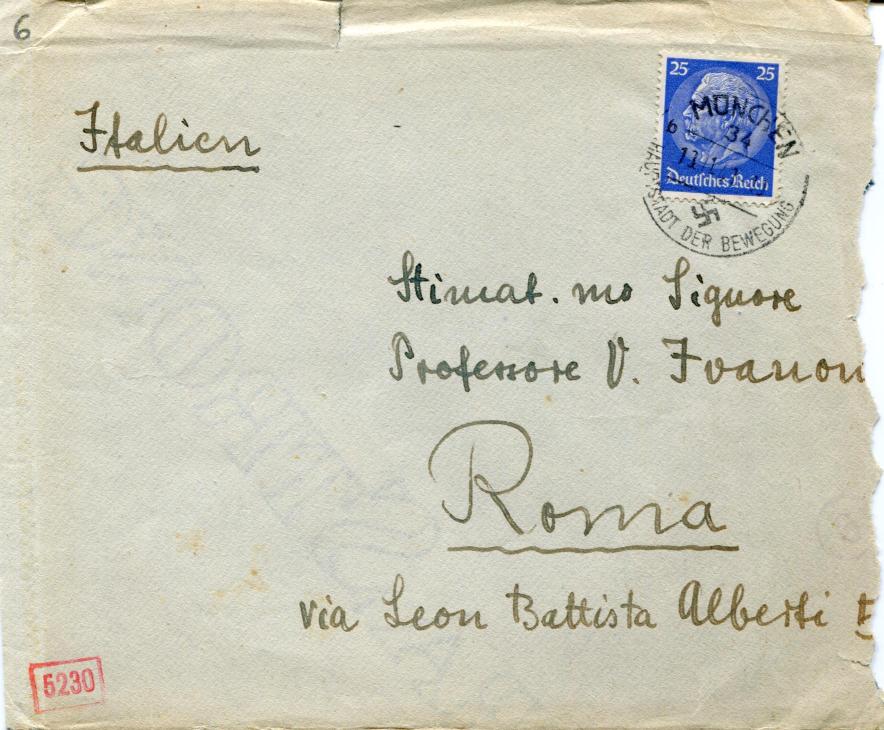 6
Italien
25 25
Deutsches Reich
MÜNCHEN
34
HAUPTSTADT DER BEWEGUNG
Stimat.mo Signore
Professore V. Ivanon
Roma
via Leon Battista Alberti
5230